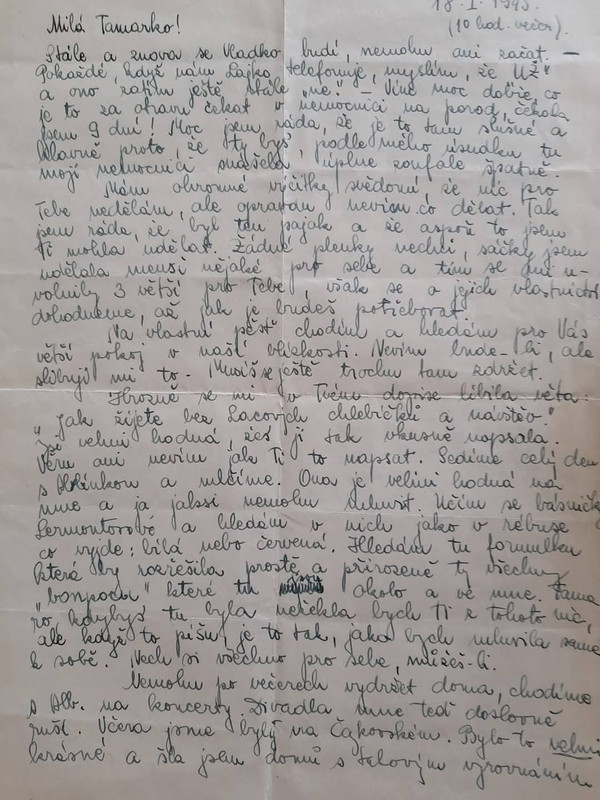 18. I. 1945.
Milá Tamarko!
(10 hod. večer).
Stále a znova se Vladko budí, nemohu ani začat. —
Pokaždé, když nám Lajko telefonuje, myslím, že "Už"
a ono zatím ještě stále "ne". — Vím moc dobře, co
je to za otravu čekat v nemocnici na porod, čekala
jsem 9 dní! Moc jsem ráda, že je to tam slušné a
hlavně proto, že ty bys, podle mého úsudku tu
moji nemocnici snášela úplne zoufale špatně.
Mám ohromné výčitky svědomí, že nic pro
Tebe nedělám, ale opravdu nevím co dělat. Tak
jsem ráda, že byl ten pajak a že aspoň to jsem
Ti mohla udělat. Žádné plenky nechci, sáčky jsem
udělala menší nějaké pro sebe a tím se mi u-
volnily 3 větší pro Tebe, však se o jejich vlastnictví
dohodneme, až jak je budeš potřebovat.
Na vlastní pěst chodím a hledám pro Vás
větší pokoj v naší blízkosti. Nevím bude-li, ale
slibují mi to. Musíš se ještě trochu tam zdržet.
Hrozně se mi v Tvém dopise líbila věta:
"Jak žijete bez Lacových chlebíčků a návštěv."
Jsi velmi hodná, žes ji tak vkusně napsala.
Věru ani nevím jak Ti to napsat. Sedíme celý den
s Albínkou a mlčíme. Ona je velmi hodná na
mne a ja jaksi nemohu mluvit. Učím se básničky
Lermontovově a hledám v nich jako v rébuse
co vyjde: bílá nebo červená. Hledám tu formulku
která by rozřešila prostě a přirozeně ty všechny
které tu okolo a ve mne. Tama
ro, kdybys tu byla neřekla bych Ti z tohoto nic,
ale když to píšu, je to tak, jako bych mluvila sama
k sobě. Nech si všechno pro sebe, můžeš-li.
Nemohu po večerech vydržet doma, chodíme
s Alb. na koncerty. Divadla mne teď doslovně
ruší. Včera jsme byly na Čajkovském. Bylo to velmi
krásné a šla jsem domů s takovým vyrovnáním